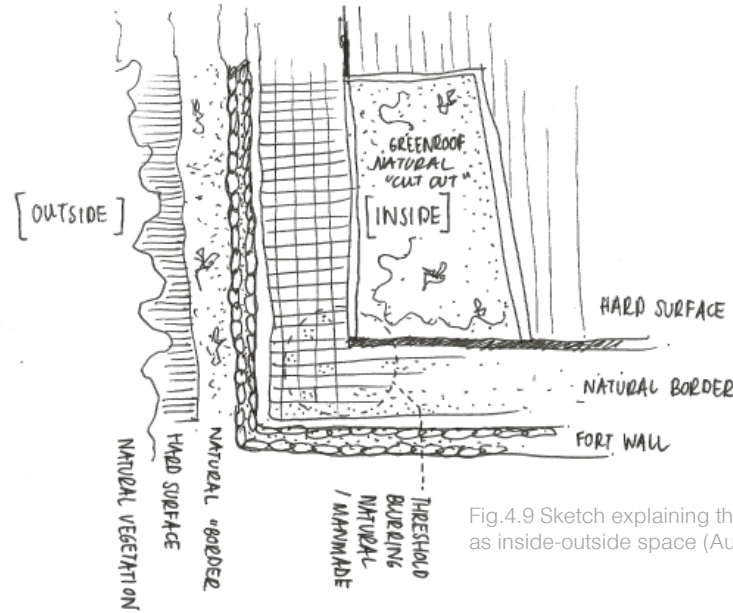 GREENROOF
NATURAL
"CUT OUT"
[OUTSIDE]
[INSIDE]
HARD SURFACE
NATURAL BORDER
FORT WALL
NATURAL VEGETATION
HARD SURFACE
NATURAL "BORDER
THRESHOLD
BLURRING
NATURAL
/ MANMADE
Fig.4.9 Sketch explaining th
as inside-outside space (Au